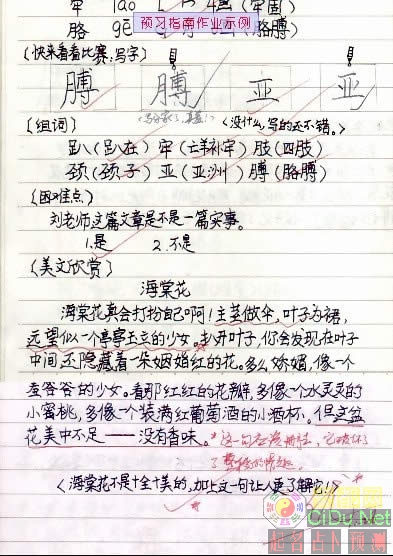 牢 lao
预习指南作业示例
胳 gē (胳膊)
(快来看看比赛,写字)
膊 膊 亚 亚
(组词) (没什么,写的还不错。)
趴(趴在) 牢(亡羊补牢) 肢(四肢)
颈(颈子) 亚(亚洲) 膊(胳膊)
(困难点)
刘老师这篇文章是不是一篇实事。
1.是 2.不是
(美文欣赏)
海棠花
海棠花真会打扮自己啊!主茎做伞,叶子为裙,
远望似一个亭亭玉立的少女。扒开叶子,你会发现在叶子
中间还隐藏着一朵姻姻红的花。多么娇媚,像一个
羞答答的少女。看那红红的花瓣,多像一个水灵灵的
小蜜桃,多像一个装满红葡萄酒的小酒杯。但这盆
花美中不足——没有香味。
(海棠花不是十全十美的,加上这一句让人更了解它!)
CiDu.Net
起名占卜预测